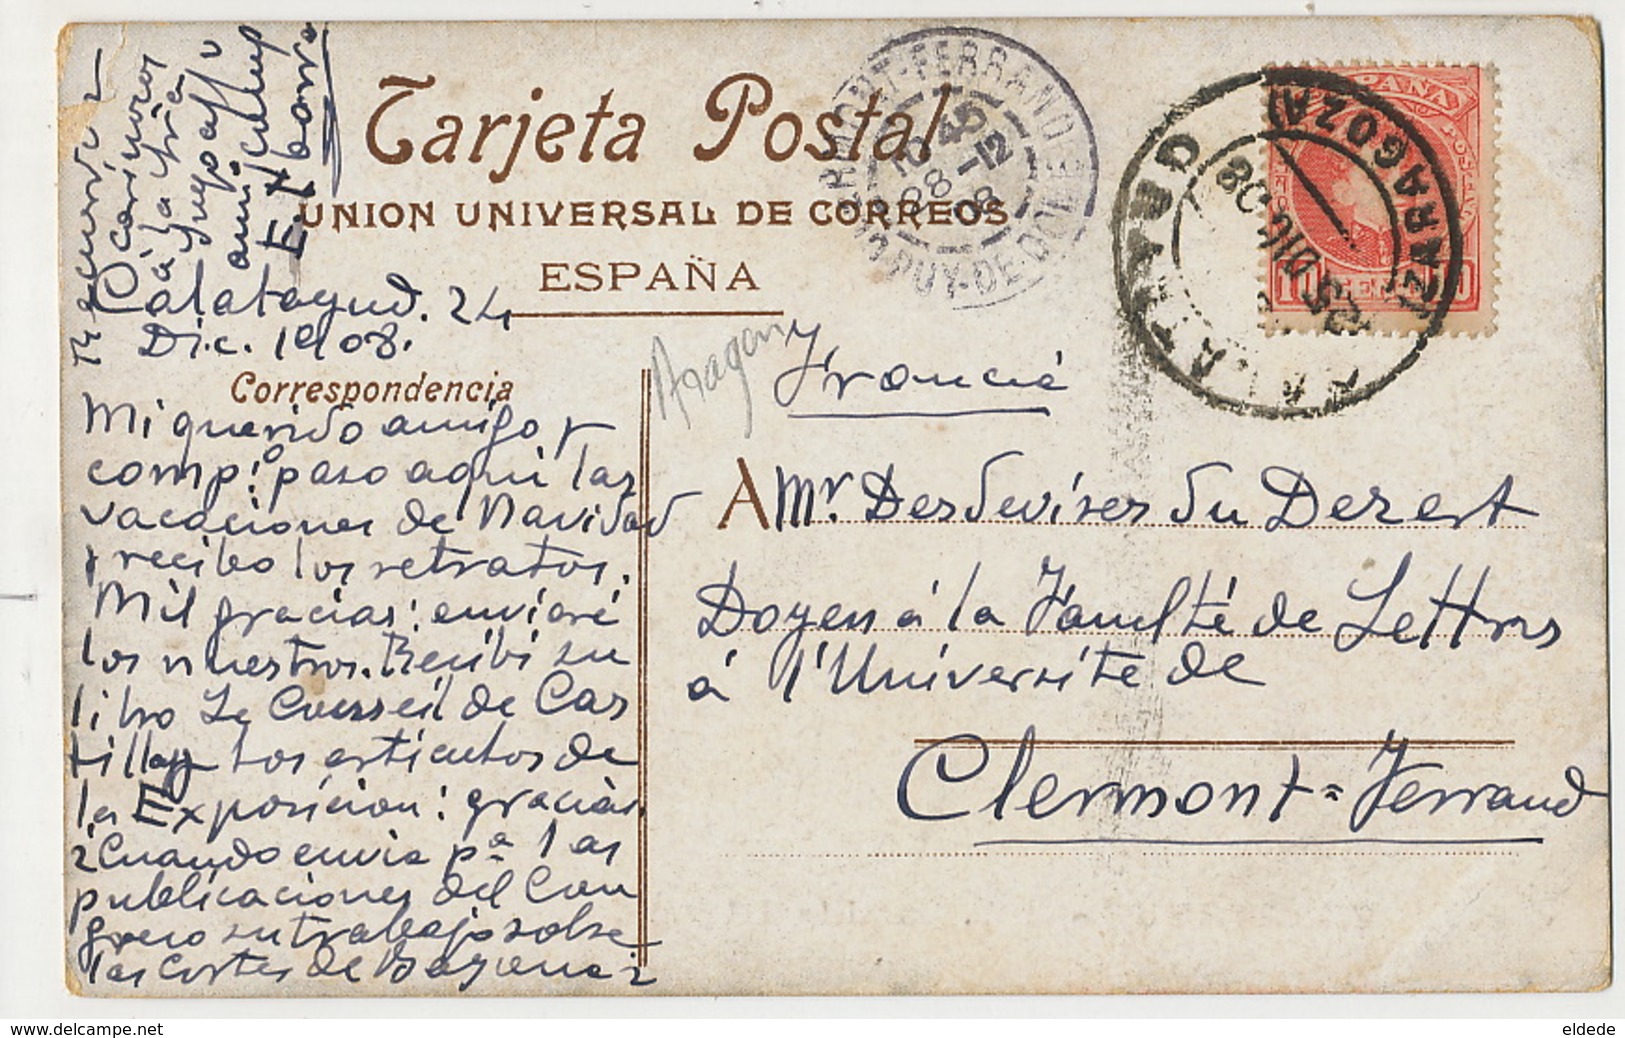 Tarjeta Postal
UNION UNIVERSAL DE CORREOS
ESPAÑA
Correspondencia
Calatayud. 24
Dic. 1908.
Mi querido amigo y
comp:º paso aqui las
vacaciones de Navidad
y recibo los retratos.
Mil gracias: enviaré
los nuestros. Recibi su
libro Le Conseil de Cas
tilla y los articulos de
la Exposicion: gracias.
¿Cuando envia pª las
publicaciones del Con
greso su trabajo sobre
las Cortes de Bayona?
Recuerdos
cariñosos
á la
suyo
amigo
Aragon
Francia
A Mr. Desdevises du Dezert
Doyen á la Faculté de Lettres
á l'Université de
Clermont=Ferrand
CLERMONT-FERRAND
PUY-DE-DOME
CALATAYUD
ZARAGOZA
25 DIC 08
ESPAÑA
10 CEN 10
www.delcampe.net
eldede